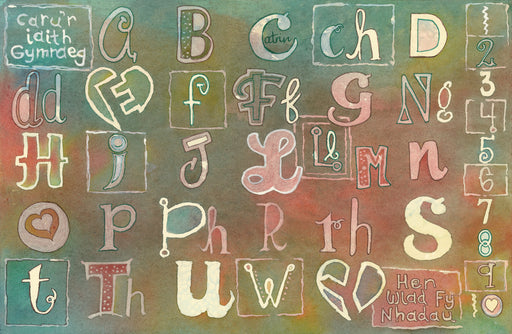 Caru'r
iaith
Gymraeg
a B Catrin ch D
dd E f Ff G Ng
H i J L ll M n
O P Ph R rh S
t Th u W Y
1
2
3
4
5
6
7
8
9
10
Hen
Wlad Fy
Nhadau